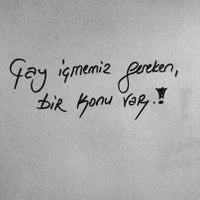 Çay içmemiz gereken,
bir konu var.!